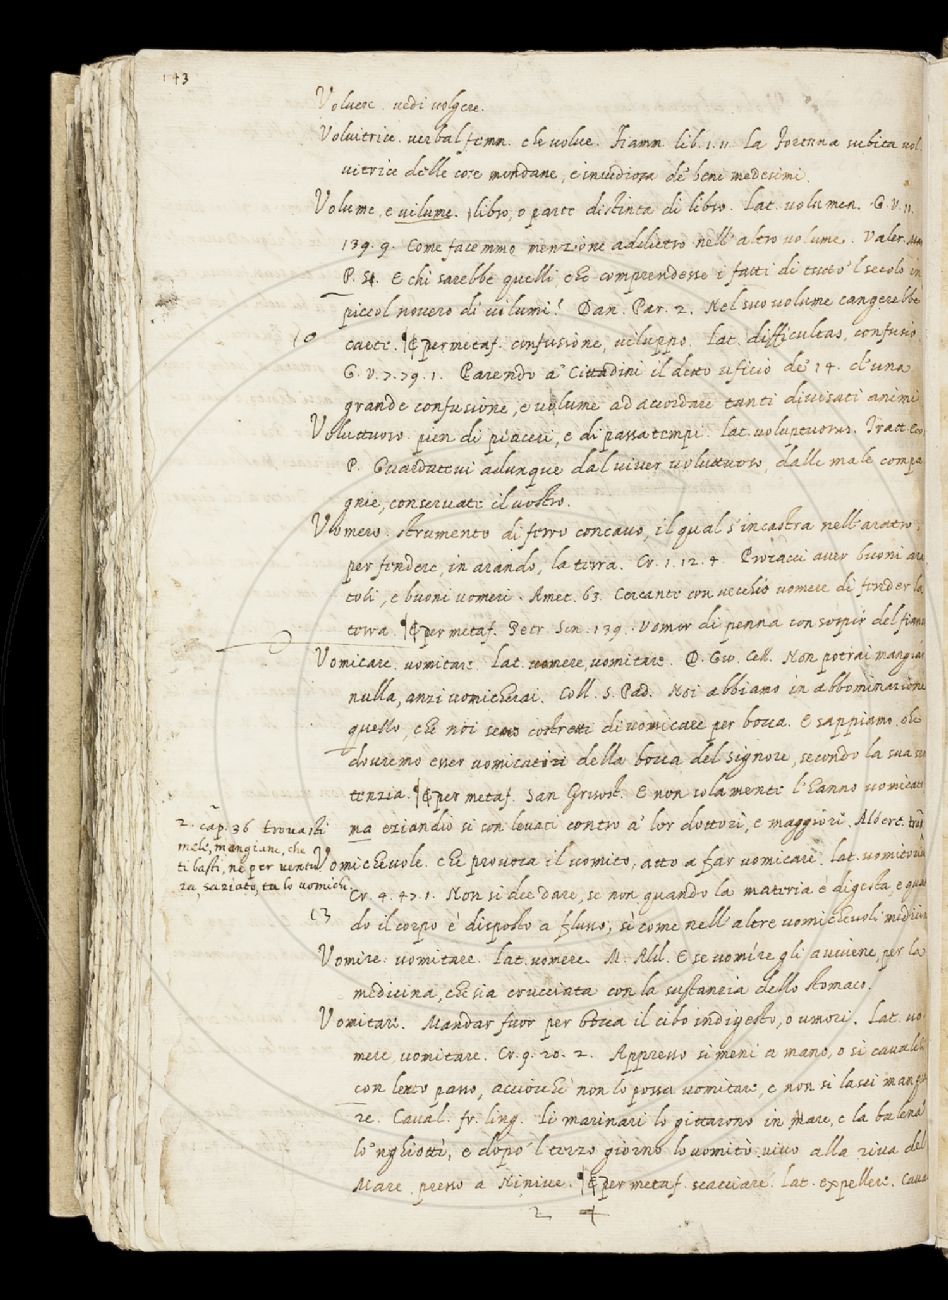 143
Volvere. vedi volgere.
Volvitrice. verbal femm. che volve. Fiamm. lib. 1. 11. La Fortuna subita vol
vitrice delle cose mondane, e invidiosa de' beni medesimi.
Volume, e vilume. libro, o parte distinta di libro. Lat. volumen. G. V. 11.
139. 9. Come facemmo menzione addietro nell'altro volume. Valer. Mas
P. S. E chi sarebbe quelli, che comprendesse i fatti di tutto 'l secolo in
piccol novero di volumi? Dan. Par. 2. Nel suo volume cangerebbe
carte. ¶ E per metaf. confusione, viluppo. Lat. difficultas, confusio
G. V. 7. 79. 1. Parendo a' Cittadini il detto uficio de' 14. d'una
grande confusione, e volume ad accordare tanti divisati animi
Voluttuoso. pien di piaceri, e di passatempi. Lat. voluptuosus. Tratt. Eco
P. Guardatevi adunque dal viver voluttuoso, dalle male compa
gnie, conservate il vostro.
Vomero. strumento di ferro concavo, il qual s'incastra nell'aratro,
per fendere, in arando, la terra. Cr. 1. 12. 4. Procacci aver buoni ara
toli, e buoni vomeri. Amet. 63. Cercante con vecchio vomere di fender la
terra. ¶ E per metaf. Petr. Son. 139. Vomer di penna con sospir del fianco
Vomicare. vomitare. Lat. vomere, vomitare. D. Gio. Cell. Non potrai mangiar
nulla, anzi vomicherai. Coll. S. Pad. Noi abbiamo in abbominazione
questo, che noi semo costretti di vomicare per bocca. E sappiamo, che
dovremo esser vomicatori della bocca del signore, secondo la sua sen
tenzia. ¶ E per metaf. San Grisost. E non solamente l'hanno vomicato
ma eziandio si son levati contro a' lor dottori, e maggiori. Albert. trat
2. cap. 36 trovasti
mele, mangiane, che
ti basti, ne per ventu
ra, saziato, tu lo vomichi
Vomichevole. che provoca il vomito, atto a far vomicare. lat. vomitorius
Cr. 4. 47. 1. Non si dee dare, se non quando la materia è digesta, e quan
do il corpo è disposto a flusso, sì come nell'altre vomichevoli medicin
Vomire. vomitare. Lat. vomere. M. Ald. E se vomire gli avviene, per la
medicina, che sia crucciata con la sustanzia dello stomaco.
Vomitare. Mandar fuor per bocca il cibo indigesto, o umori. Lat. vo
mere, vomitare. Cr. 9. 20. 2. Appresso si meni a mano, o si cavalchi
con lento passo, acciocchè non lo possa vomitare, e non si lasci mangia
re. Caval. fr. ling. li marinari lo gittarono in mare, e la balena
lo 'nghiottì, e dopo 'l terzo giorno lo vomitò vivo alla riva del
Mare presso a Ninive. ¶ E per metaf. scacciare. Lat. expellere. Caval